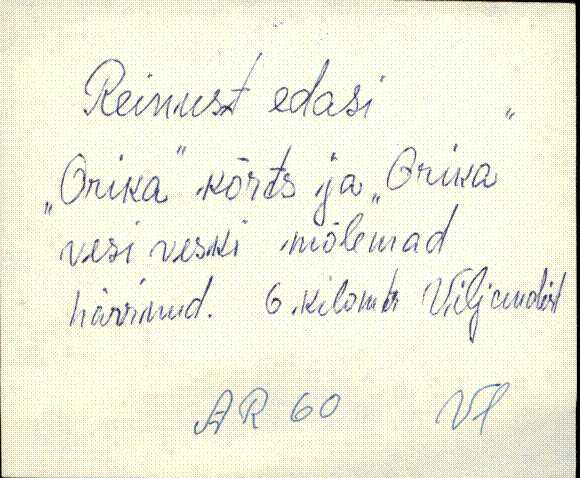 Reinust edasi
„Orika" kõrts ja „Orika"
vesi veski mõlemad
hävinud. 6 kilomtr Viljandist
AR 60 VH